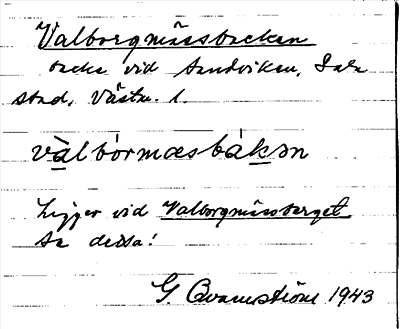 Valborgmässbacken
backe vid Sandviken, Sala
stad, Västm. l.
vàlbórmæsbàkən
Ligger vid Valborgmässberget
Se detta!
G. Qvarnström 1943